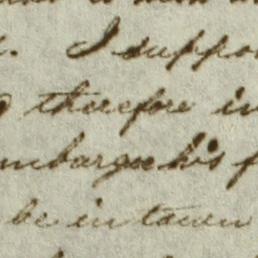 I suppo
therefore in
mbargo his f
be in town